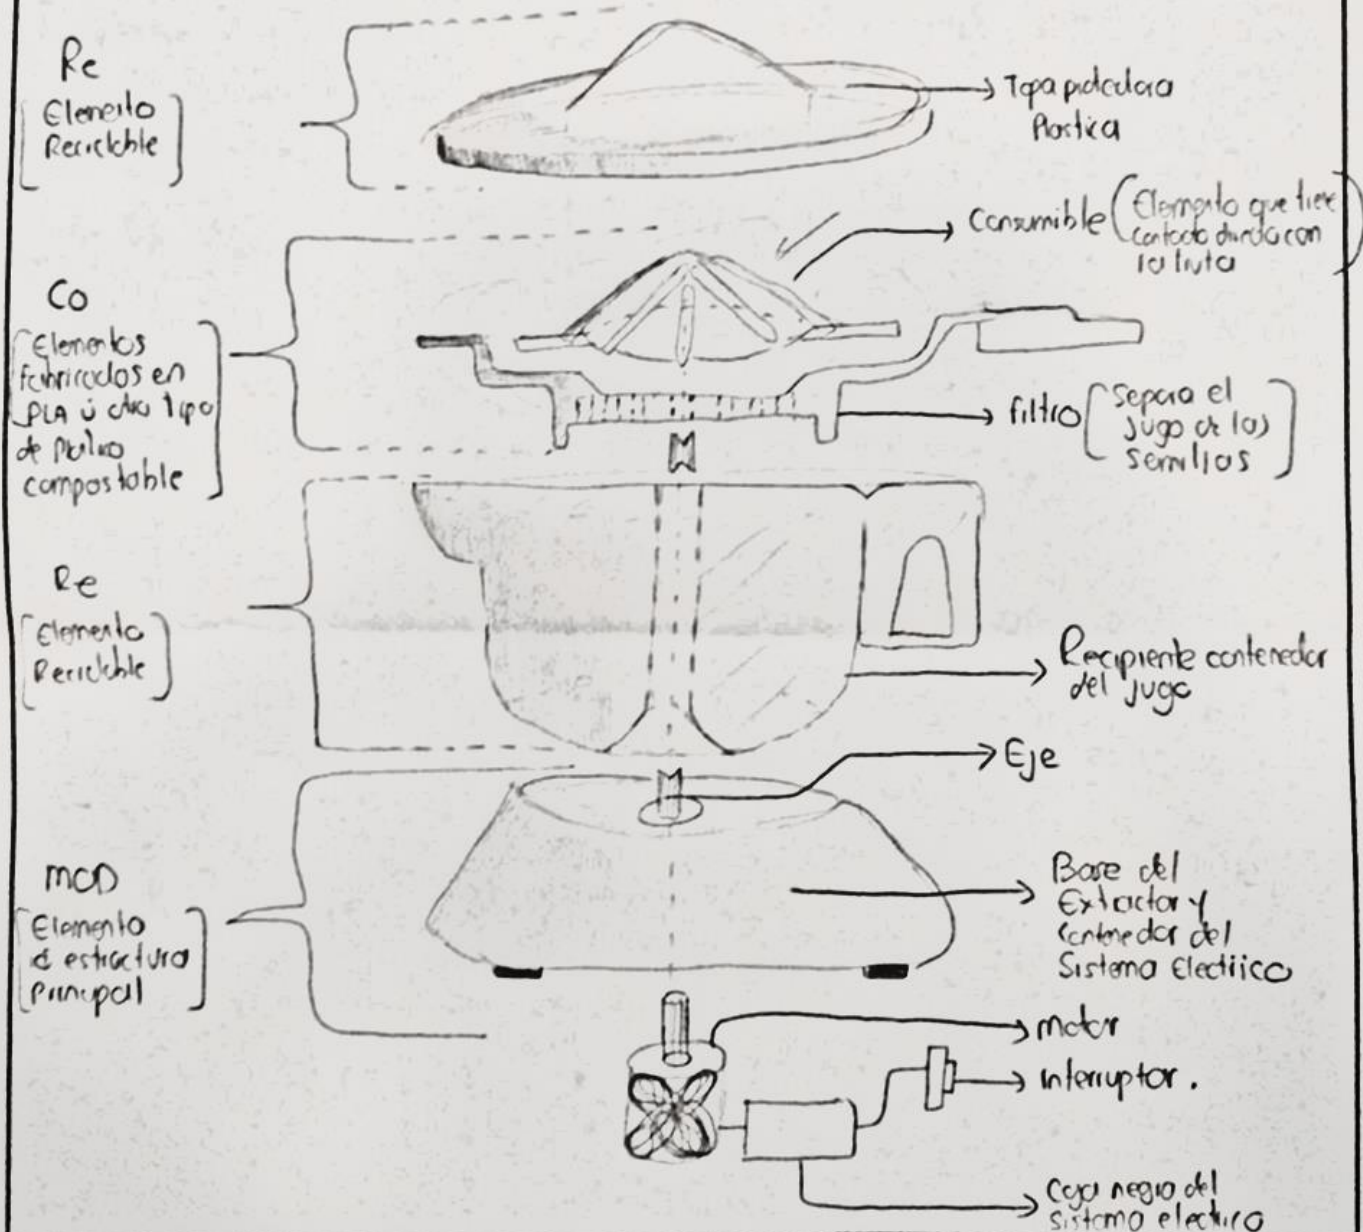 Re
[Elemento
Reciclable]
Tapa protectora
Plastica
Consumible (Elemento que tiene
contacto directo con
la fruta)
Co
[Elementos
fabricados en
PLA ú otro tipo
de
compostable]
filtro [Separa el
jugo de las
semillas]
Re
[Elemento
Reciclable]
Recipiente contenedor
del jugo
Eje
MOD
[Elemento
d estructura
Principal]
Base del
Extractor y
Contenedor del
Sistema Electrico
motor
interruptor.
Caja negra del
sistema electrico